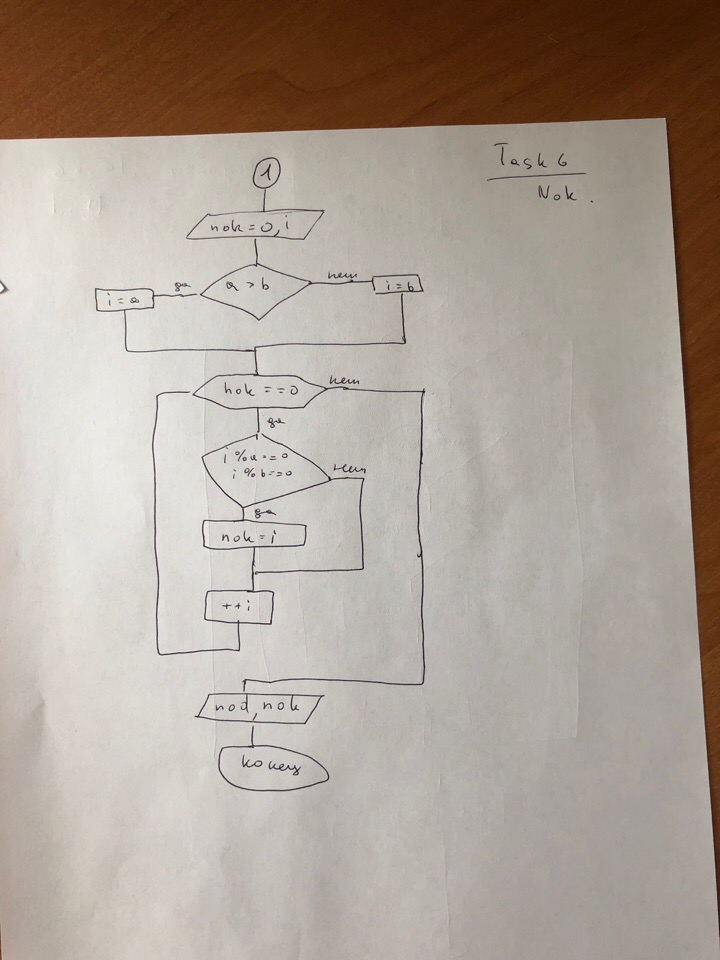 Task 6
Nok.
1
nok = 0, i
a > b
да
нет
i = a
i = b
nok == 0
нет
да
i % a == 0
i % b == 0
нет
да
nok = i
++i
nod, nok
конец